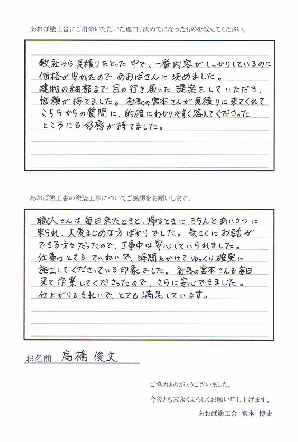 あおば塗工舎にご用命いただいた理由、決めてになったものを教えてください。
数社から見積りをとった中で、一番内容がしっかりしているのに
価格が安れたので あおばさんに決めました。
建物の細部まで目の行き届いた提案をしていただき、
信頼が持てました。社長の宮本さんが見積りに来てくれて
こちらからの質問に、的確にわかりやすく答えてくださった
ところにも好感が持てました。
あおば塗工舎の塗装工事についてご感想をお願いします。
職人さんは毎日来たときと、帰るときにきちんとあいさつに
来られ、大変まじめな方ばかりでした。気さくにお話が
できる方々だったので、工事中は安心していられました。
仕事はとてもていねいで、時間をかけてゆっくり確実に
施工してくださっている印象でした。社長の宮本さんも毎日
来て作業してくださったので、さらに安心できました。
仕上がりもきれいで、とても満足しています。
お名前 高橋俊文
ご協力ありがとうございました。
今後とも末永くよろしくお願い申し上げます。
あおば塗工舎 宮本 博史